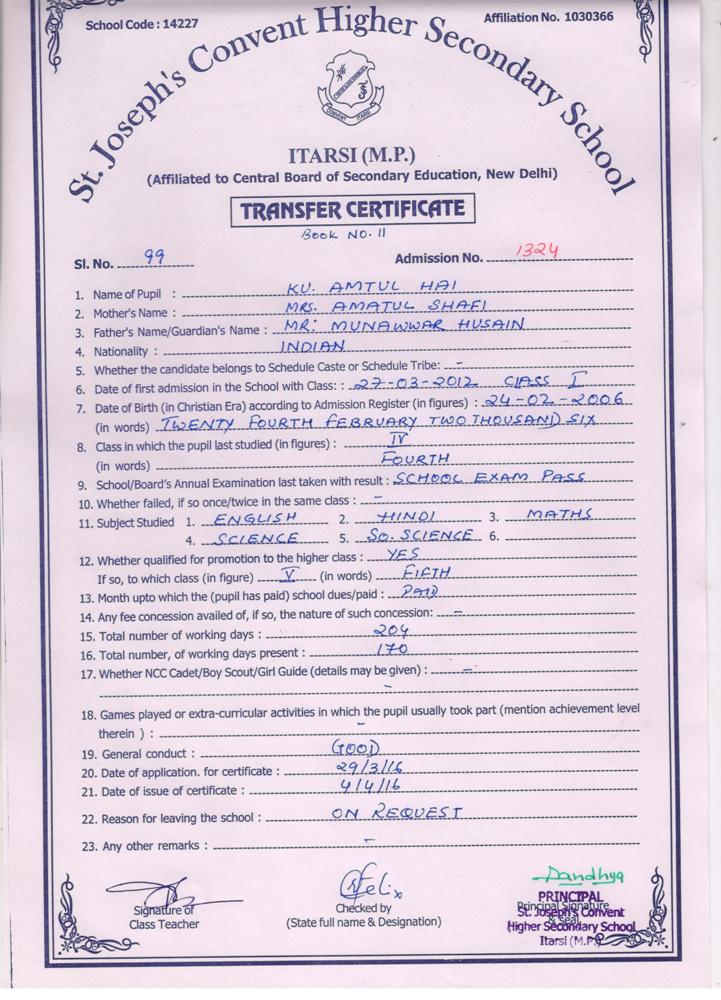 School Code : 14227
Affiliation No. 1030366
St. Joseph's Convent Higher Secondary School
CONVENT ITARSI
ITARSI (M.P.)
(Affiliated to Central Board of Secondary Education, New Delhi)
TRANSFER CERTIFICATE
BOOK NO. 11
Sl. No. 99
Admission No. 1324
1. Name of Pupil : KU. AMTUL HAI
2. Mother's Name : MRS. AMATUL SHAFI
3. Father's Name/Guardian's Name : MR: MUNAWWAR HUSAIN
4. Nationality : INDIAN
5. Whether the candidate belongs to Schedule Caste or Schedule Tribe: -
6. Date of first admission in the School with Class: : 27-03-2012 CLASS I
7. Date of Birth (in Christian Era) according to Admission Register (in figures) : 24-02-2006
(in words) TWENTY FOURTH FEBRUARY TWO THOUSAND SIX
8. Class in which the pupil last studied (in figures) : IV
(in words) FOURTH
9. School/Board's Annual Examination last taken with result : SCHOOL EXAM PASS
10. Whether failed, if so once/twice in the same class : -
11. Subject Studied 1. ENGLISH 2. HINDI 3. MATHS
4. SCIENCE 5. SO. SCIENCE 6.
12. Whether qualified for promotion to the higher class : YES
If so, to which class (in figure) V (in words) FIFTH
13. Month upto which the (pupil has paid) school dues/paid : PAID
14. Any fee concession availed of, if so, the nature of such concession: -
15. Total number of working days : 204
16. Total number, of working days present : 170
17. Whether NCC Cadet/Boy Scout/Girl Guide (details may be given) : -
-
18. Games played or extra-curricular activities in which the pupil usually took part (mention achievement level
therein ) : -
19. General conduct : GOOD
20. Date of application. for certificate : 29/3/16
21. Date of issue of certificate : 4/4/16
22. Reason for leaving the school : ON REQUEST
23. Any other remarks : -
Signature of
Class Teacher
Felix
Checked by
(State full name & Designation)
Sandhya
PRINCIPAL
Principal Signature
& seal
St. Joseph's Convent
Higher Secondary School
Itarsi (M.P.)